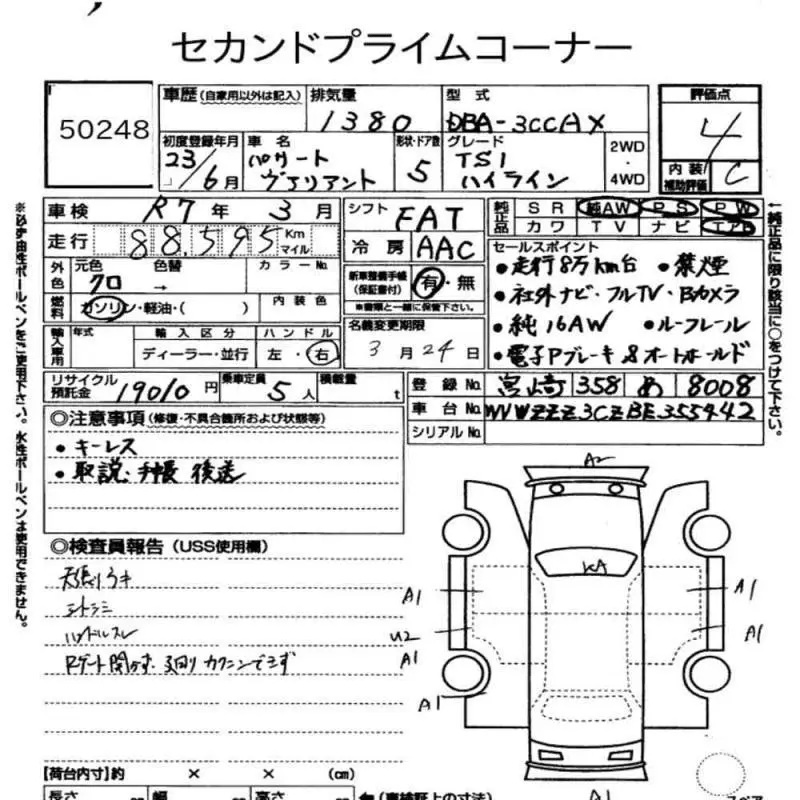 セカンドプライムコーナー
50248
車歴 (自家用以外は記入) 排気量 型式 評価点
1380 DBA-3CCAX 4
初度登録年月 車名 形状・ドア数 グレード 2WD・4WD
23/6月 パサート ヴァリアント 5 TSI ハイライン
内装/補助評価 C
車検 R7年 3月 シフト FAT 純正品 SR 純AW PS PW
カワ TV ナビ エアB
走行 88,595 Km マイル 冷房 AAC
外色 元色 色替 カラーNo.
クロ →
燃料 ガソリン・軽油・( ) 内装色
新車整備手帳(保証書付) 有・無
※書類と一緒に保管下さい。
輸入車用 年式 輸入区分 ハンドル
ディーラー・並行 左・右
名義変更期限
3月24日
セールスポイント
・走行8万km台 ・禁煙
・社外ナビ・フルTV・Bカメラ
・純16AW ・ルーフレール
・電子Pブレーキ&オートホールド
リサイクル預託金 19010円 乗車定員 5人 積載量 t
登録No. 宮崎 358 め 8008
車台No. WVWZZZ3CZBE355442
シリアルNo.
◎注意事項(修復・不具合箇所および状態等)
・キーレス
・取説・手帳 後送
◎検査員報告 (USS使用欄)
天張リウキ
シトラミ
ハンドルスレ
Rゲート開かず、3列カクニンできず
A2
KA
A1 A1
U2 A1
A1
A1
A1
【荷台内寸】約 × × (cm)
長さ 幅 高さ (車検証上の寸法)
スペア
※必ず油性ボールペンをご使用下さい。水性ボールペンは使用できません。
↑純正品に限り該当に○をつけて下さい。